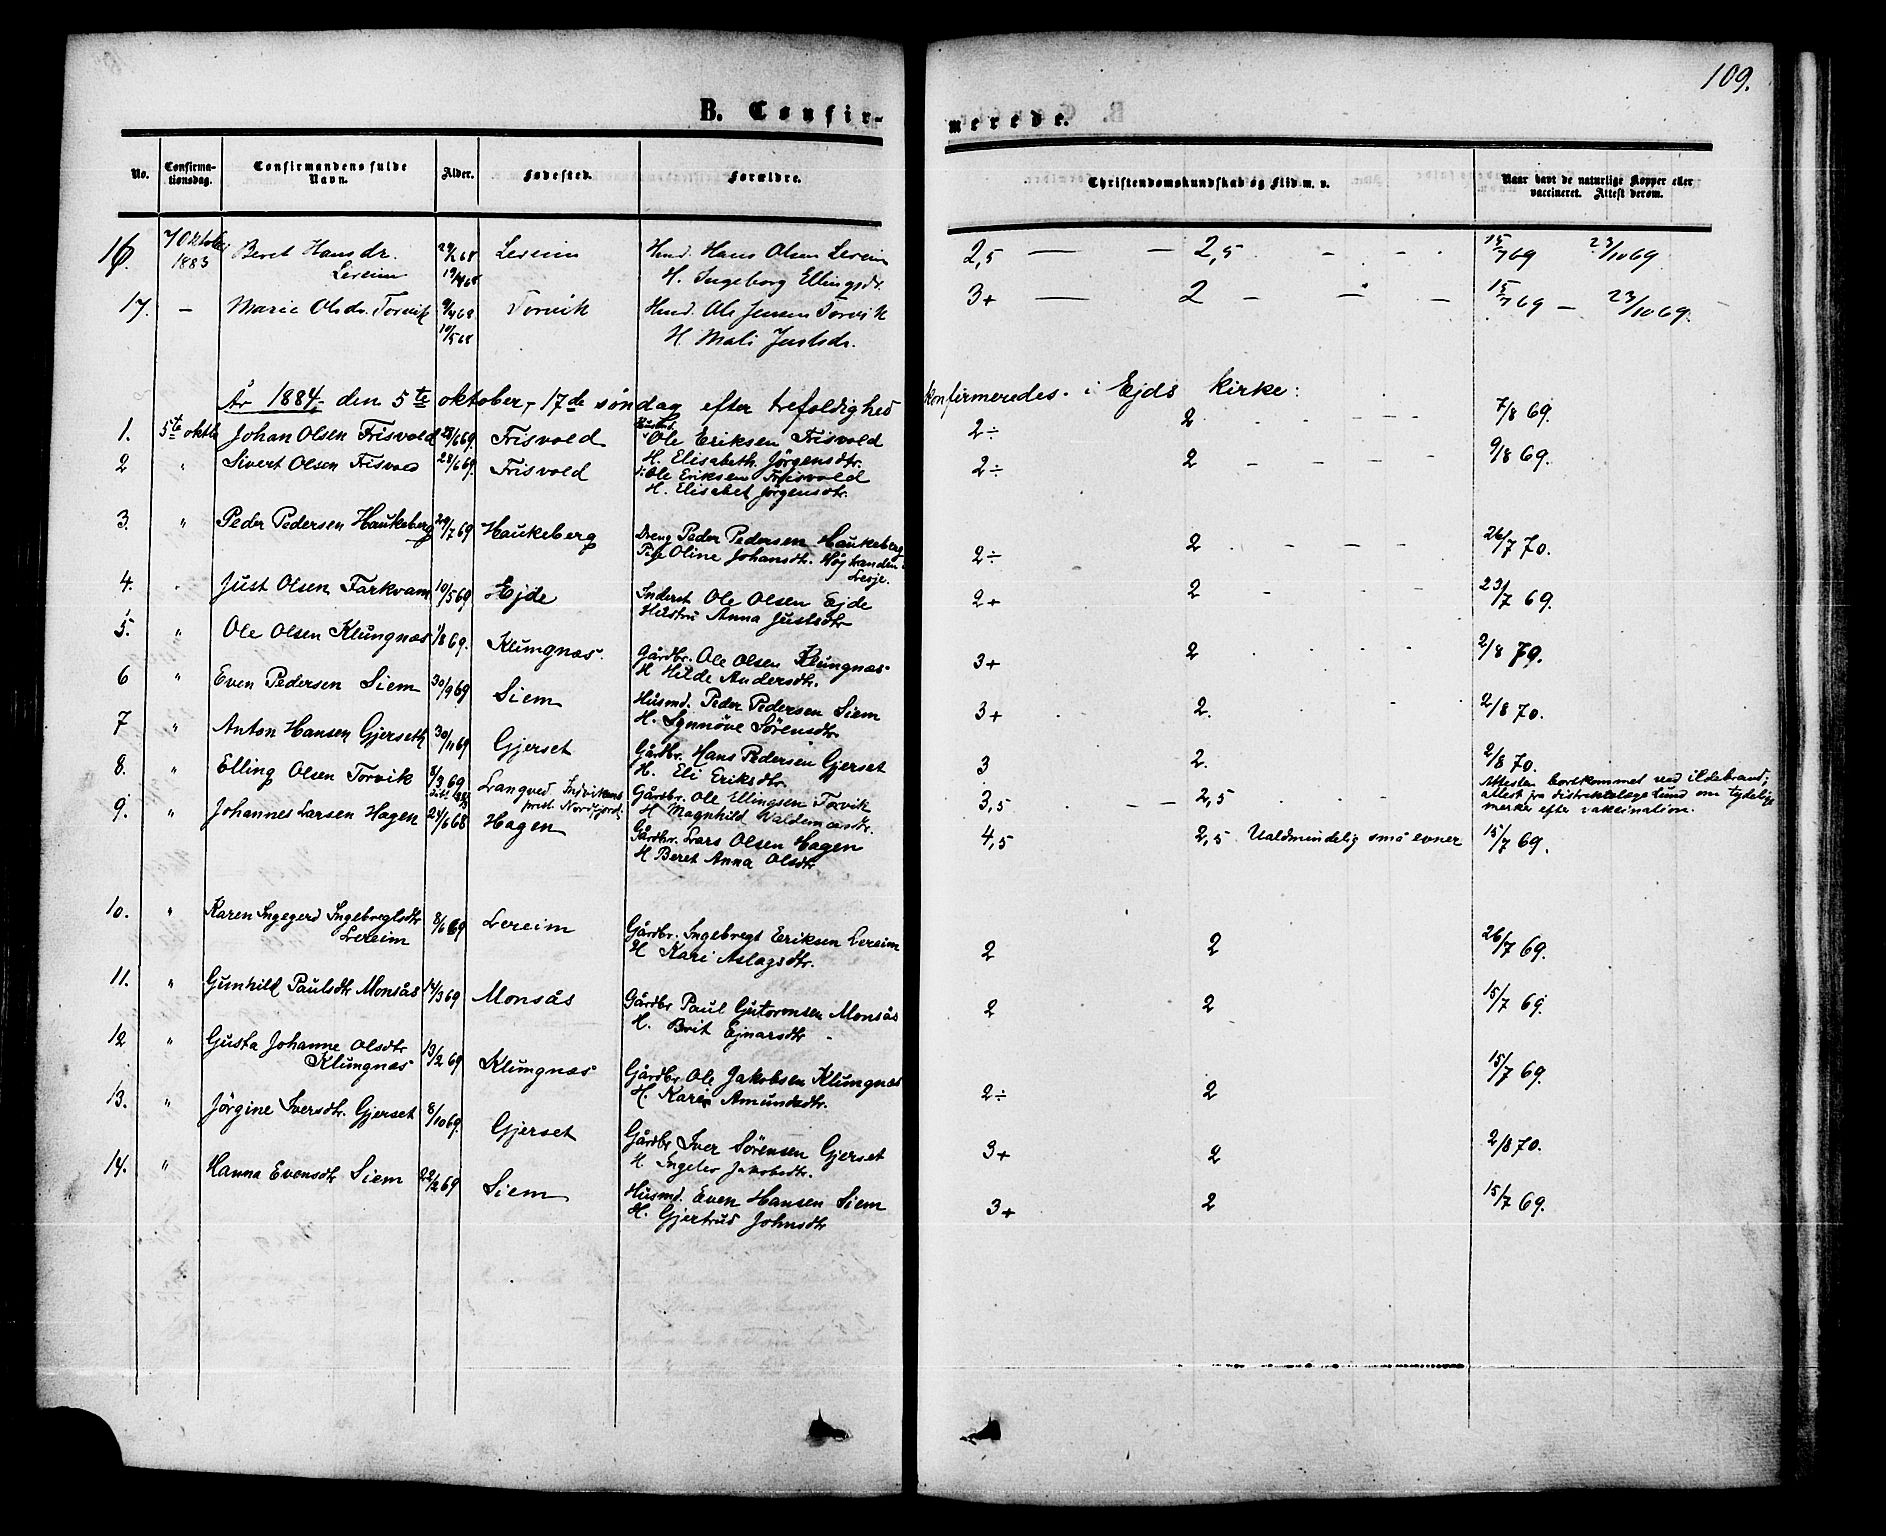 109.
B. Confir-
merede.
No.
Confirma-
tionsdag.
Confirmandens fulde
Navn.
Alder.
Fødested.
Forældre.
Christendomskundskab og Flid m. v.
Naar havt de naturlige Kopper eller
vaccineret. Attest derom.
16. 7 Oktober Beret Hansdr. Lereim Hmd. Hans Olsen Lereim 2,5 — — 2,5 - - - 15/7 69 23/10 69
1883 Lereim 19/4 68 H. Ingeborg Ellingsdr.
17. — Marie Olsdr. Torvik 9/4 68 Torvik Hmd. Ole Jensen Torvik 3+ — 2 - - - 15/7 69 — 23/10 69.
10/5 68 H. Mali Justsdr.
År 1884, den 5te oktober, 17de søndag efter trefoldighed konfirmeredes i Ejds kirke:
1. 5te oktb Johan Olsen Frisvold 28/6 69. Frisvold Husmd. Ole Eriksen Frisvold 2÷ 2 7/8 69.
H. Elisabeth Jørgensdtr.
2 " Sivert Olsen Frisvold 28/6 69. Frisvold Ole Eriksen Frisvold 2÷ 2 - - - - 9/8 69.
H. Elisabet Jørgensdtr.
3. " Peder Pedersen Haukeberg 29/7 69 Haukeberg Dreng Peder Pedersen Haukeberg 2÷ 2 - - - 26/7 70.
Pige Oline Johansdtr.
Lesje.
4. " Just Olsen Farkvam 10/5 69 Ejde Inderst Ole Olsen Ejde 2+ 2 23/7 69.
Hustru Anna Justsdtr
5. " Ole Olsen Klungnæs 1/8 69. Klungnæs. Gårdbr. Ole Olsen Klungnæs 3+ 2 2/8 70.
H Hilde Andersdtr.
6 " Even Pedersen Siem 30/9 69 Siem Husmd. Peder Pedersen Siem 3+ 2. 2/8 70.
H. Synnöve Sörensdtr.
7 " Anton Hansen Gjerseth 30/11 69 Gjerset Gårdbr. Hans Pedersen Gjerset 3 2. 2/8 70.
H. Eli Eriksdtr
8. " Elling Olsen Torvik 8/3 69 Langved Indvikens Gårdbr. Ole Ellingsen Torvik 3,5 - - 2,5 Attesten bortkommet ved ildebrand;
præst. Nordfjord. H Magnhild Waldemarsdtr. attest fra distriktslæge Lund om tydelige
merker efter vaksination.
9. " Johannes Larsen Hagen 24/6 68 Hagen Gårdbr. Lars Olsen Hagen 4,5 2,5 Ualdmindelig små evner 15/7 69.
H Beret Anna Olsdtr
10. " Karen Ingegerd Ingebregtsdtr 8/6 69 Lereim Gårdbr. Ingebregt Eriksen Lereim 2 2 26/7 69.
Lereim H Kari Aslagsdtr.
11. " Gunhild Paulsdtr Monsås 14/3 69 Monsås Gårdbr Paul Gutormsen Monsås 2 2 15/7 69.
H. Brit Ejnarsdtr
12 " Gusta Johanne Olsdtr 13/2 69 Klungnæs Gårdbr Ole Jakobsen Klungnæs 2÷ 2 15/7 69.
Klungnæs H. Karen Amundsdtr.
13. " Jörgine Iversdtr. Gjerset 8/10 69. Gjerset Gårdbr Iver Sörensen Gjerset 3+ 2 2/8 70.
H Ingelev Jakobsdtr.
14. " Hanna Evensdtr Siem 22/2 69 Siem Husmd. Even Hansen Siem 3+ 2 15/7 69.
H. Gjertrud Johnsdtr